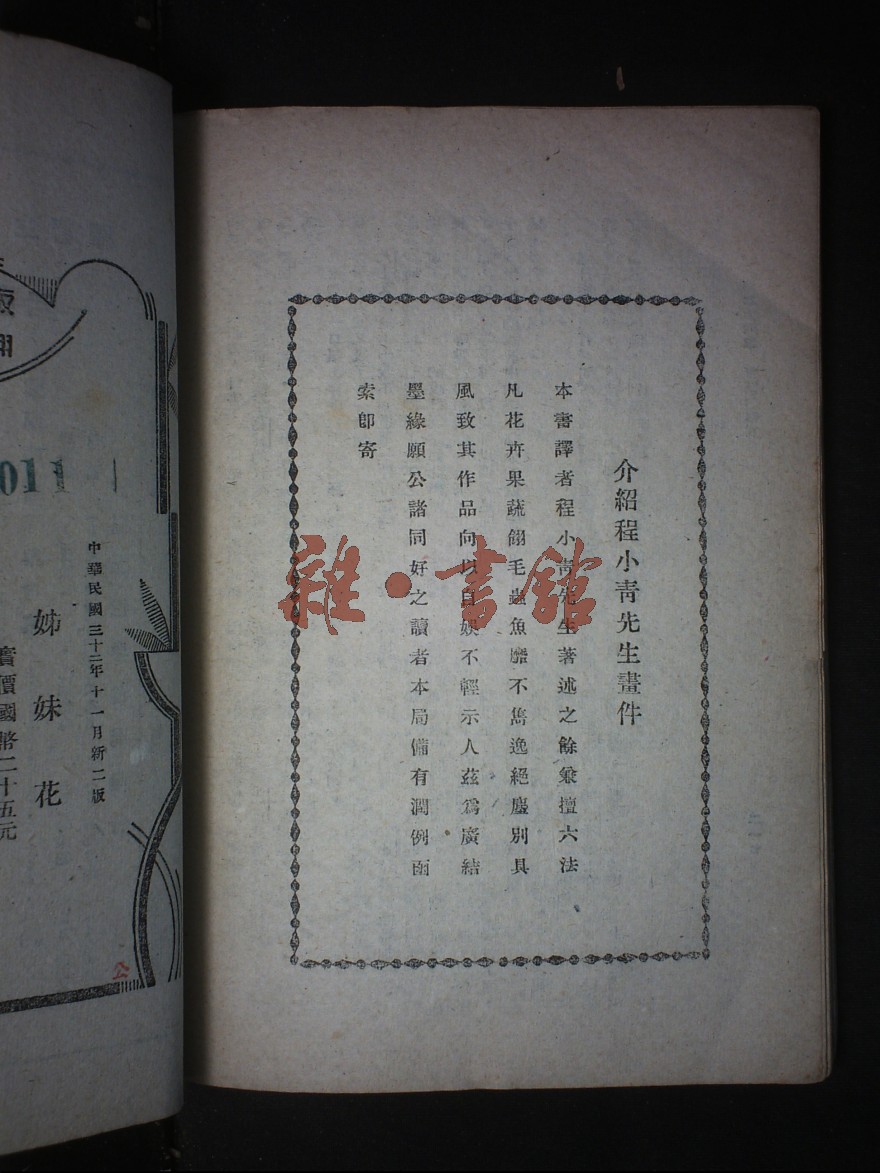 介紹程小青先生畫件
本書譯者程小青先生著述之餘兼擅六法
凡花卉果蔬翎毛蟲魚靡不雋逸絕塵別具
風致其作品向以自娛不輕示人茲爲廣結
墨緣願公諸同好之讀者本局備有潤例函
索卽寄
雜·書館
中華民國三十二年十一月新二版
姊妹花
實價國幣二十五元
011